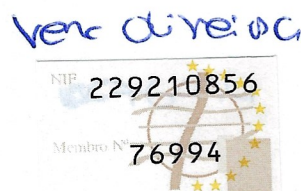 Vera Oliveira
NIF 229210856
Membro Nº 76994